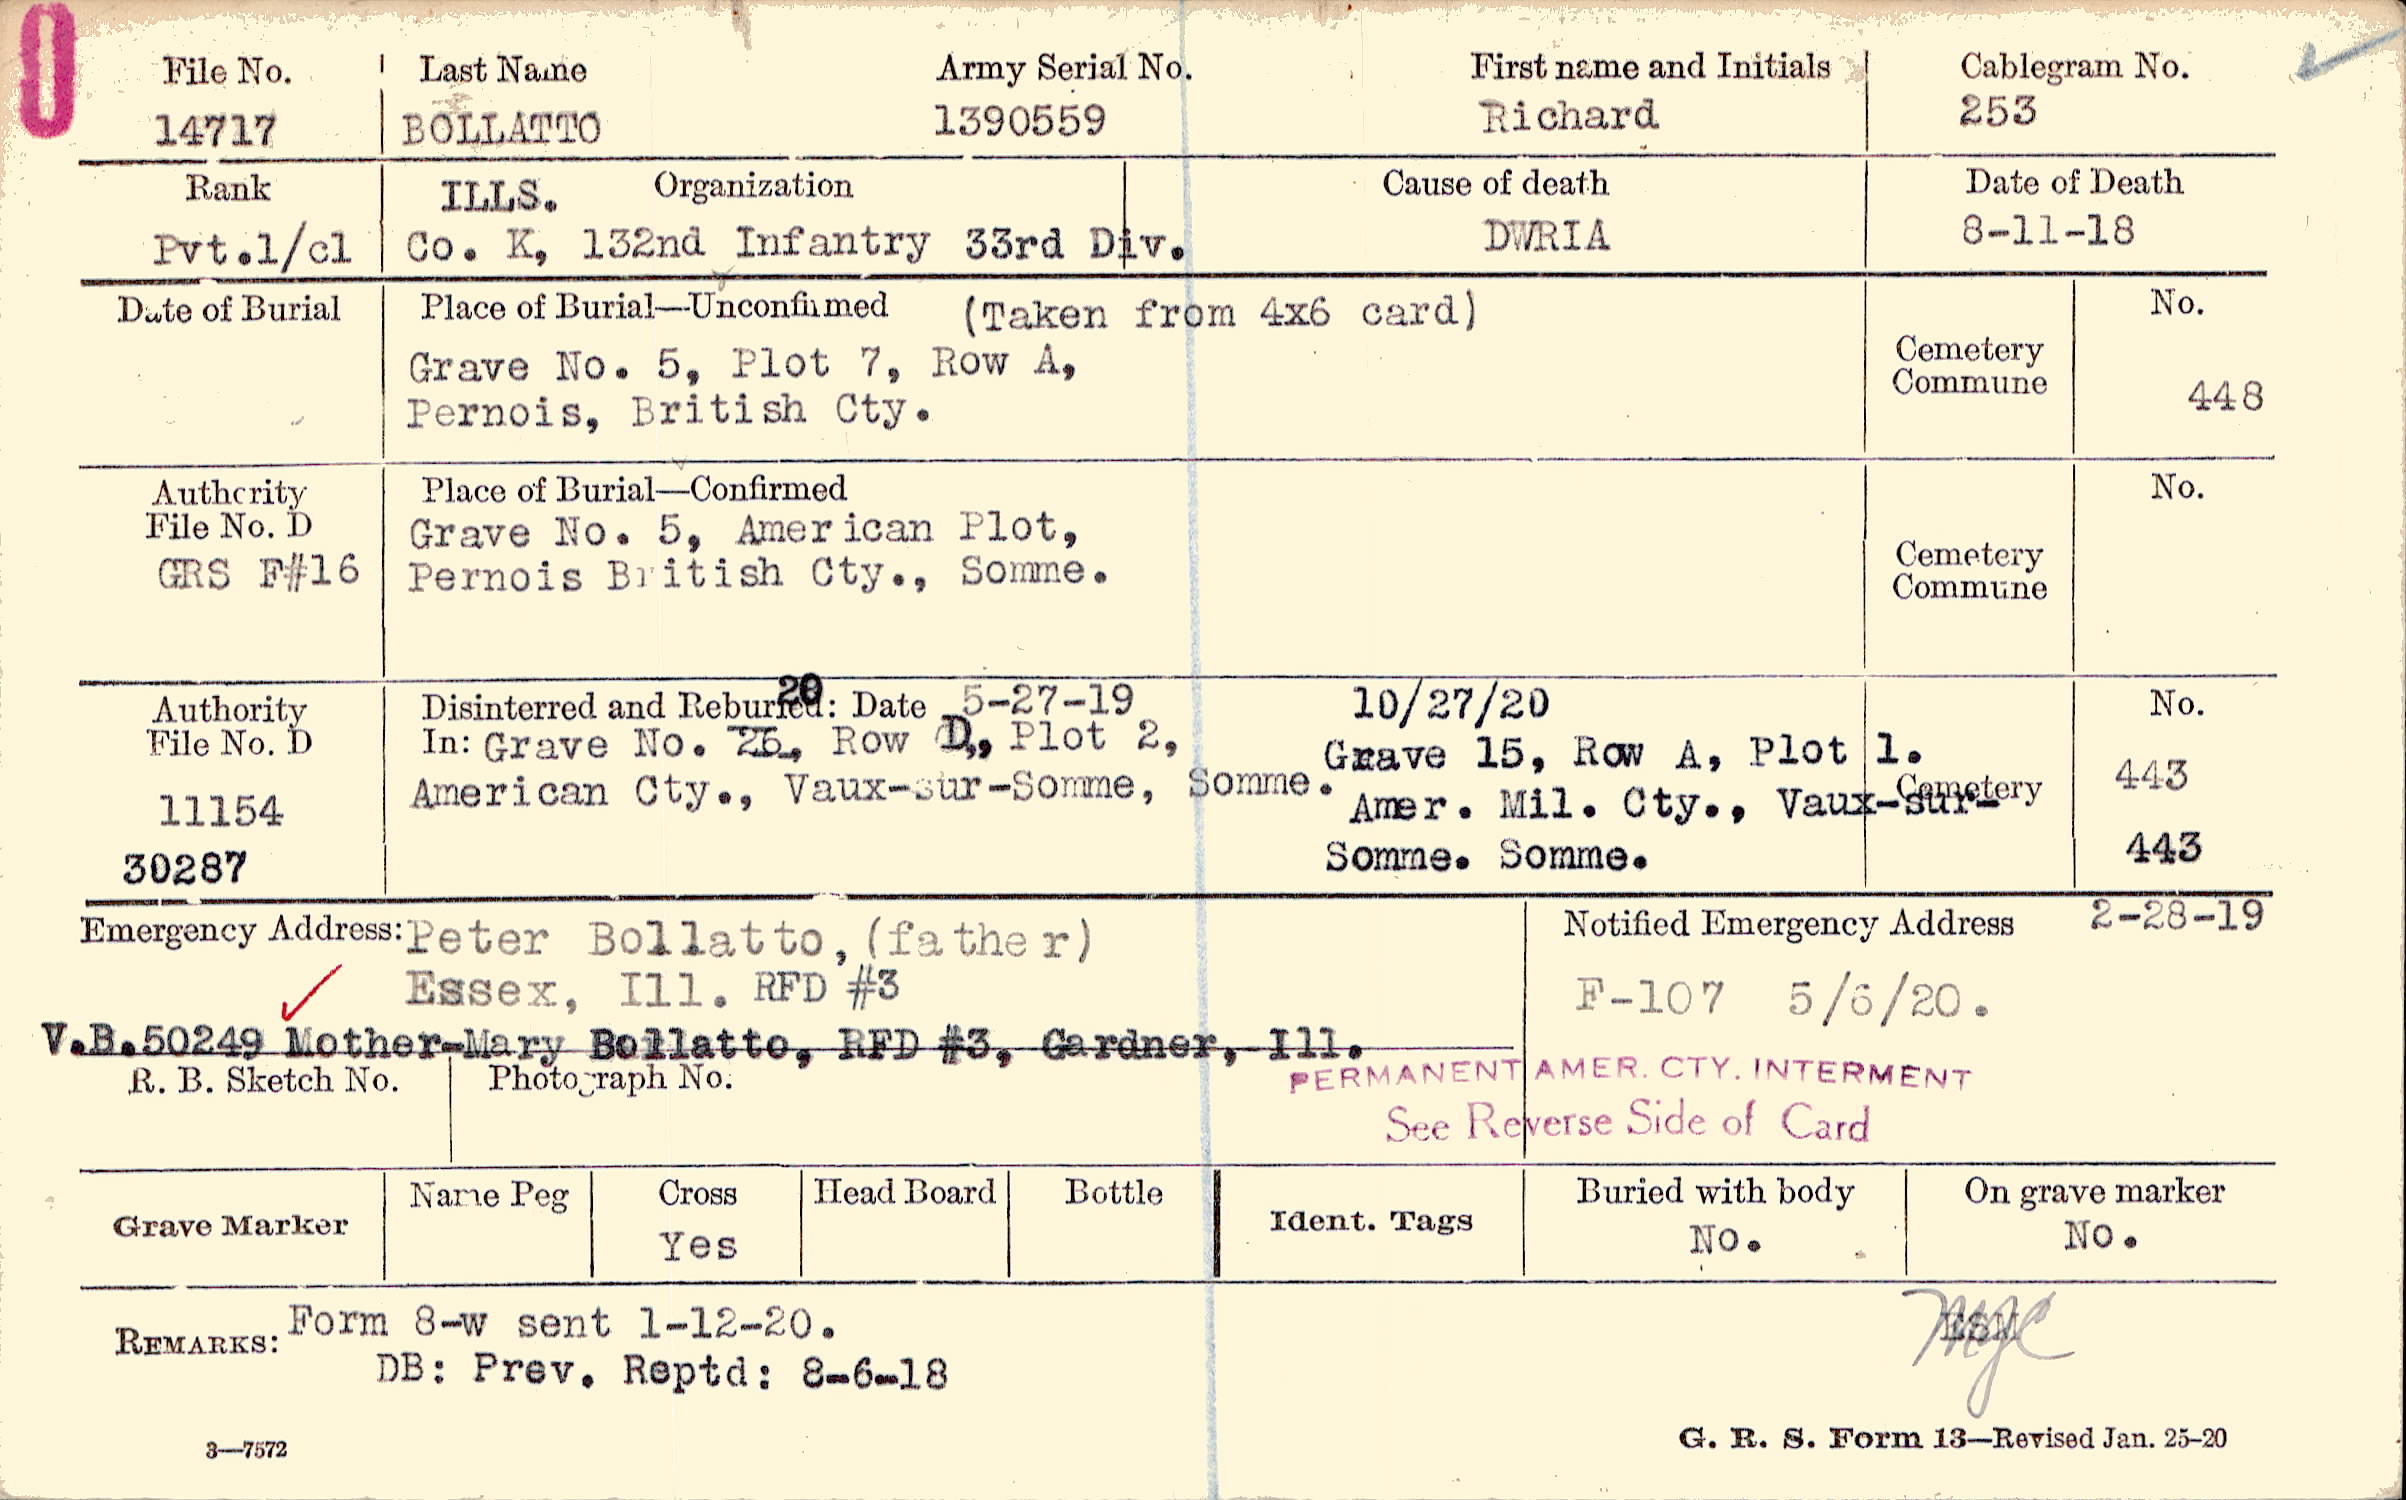 File No. Last Name Army Serial No. First name and Initials Cablegram No.
14717 BOLLATTO 1390559 Richard 253
Rank ILLS. Organization Cause of death Date of Death
Pvt.1/cl Co. K, 132nd Infantry 33rd Div. DWRIA 8-11-18
Date of Burial Place of Burial—Unconfirmed (Taken from 4x6 card) No.
Grave No. 5, Plot 7, Row A, Cemetery
Pernois, British Cty. Commune 448
Authority Place of Burial—Confirmed No.
File No. D Grave No. 5, American Plot,
GRS F#16 Pernois British Cty., Somme. Cemetery
Commune
20
Authority Disinterred and Reburied: Date 5-27-19 10/27/20 No.
File No. D In: Grave No. 25, Row D,, Plot 2, Grave 15, Row A, Plot 1.
11154 American Cty., Vaux-sur-Somme, Somme. Amer. Mil. Cty., Vaux-sur- Cemetery 443
30287 Somme. Somme. 443
Emergency Address: Peter Bollatto, (father) Notified Emergency Address 2-28-19
Essex, Ill. RFD #3 F-107 5/6/20.
V.B.50249 Mother-Mary Bollatto, RFD #3, Gardner, Ill.
R. B. Sketch No. Photograph No. PERMANENT AMER. CTY. INTERMENT
See Reverse Side of Card
Grave Marker Name Peg Cross Head Board Bottle Ident. Tags Buried with body On grave marker
Yes No. No.
REMARKS: Form 8-w sent 1-12-20. ESM
DB: Prev. Reptd: 8-6-18
3—7572 G. R. S. Form 13—Revised Jan. 25-20